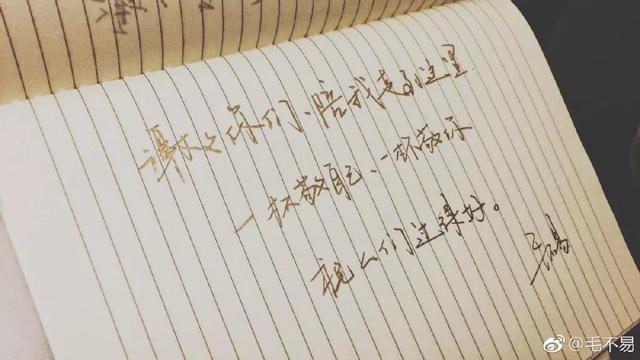 谢谢你们、陪我走到这里
一杯敬自己、一杯敬你
祝你们过得好。
毛不易
@毛不易